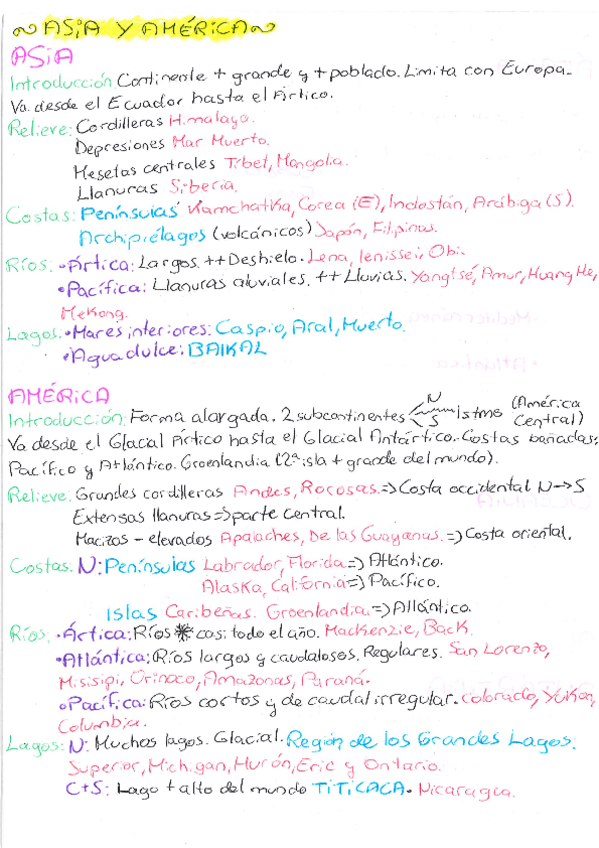 ~ASIA Y AMÉRICA~
ASIA
Introducción: Continente + grande y + poblado. Limita con Europa.
Va desde el Ecuador hasta el Ártico.
Relieve: Cordilleras Himalaya.
Depresiones Mar Muerto.
Mesetas centrales Tíbet, Mongolia.
Llanuras Siberia.
Costas: Penínsulas Kamchatka, Corea (E), Indostán, Arábiga (S).
Archipiélagos (volcánicos) Japón, Filipinas.
Ríos: •Ártica: Largos. ++Deshielo. Lena, Ienissei, Obi.
•Pacífica: Llanuras aluviales. ++ Lluvias. Yangtsé, Amur, Huang He,
Mekong.
Lagos: •Mares interiores: Caspio, Aral, Muerto.
•Agua dulce: BAIKAL
AMÉRICA
Introducción: Forma alargada. 2 subcontinentes N S Istmo (América Central)
Va desde el Glacial Ártico hasta el Glacial Antártico. Costas bañadas:
Pacífico y Atlántico. Groenlandia (2ª isla + grande del mundo).
Relieve: Grandes cordilleras Andes, Rocosas. => Costa occidental N->S
Extensas llanuras => parte central.
Macizos - elevados Apalaches, De las Guayanas. => Costa oriental.
Costas: N: Penínsulas Labrador, Florida => Atlántico.
Alaska, California => Pacífico.
Islas Caribeñas. Groenlandia => Atlántico.
Ríos: •Ártica: Ríos casi todo el año. Mackenzie, Back.
•Atlántica: Ríos largos y caudalosos. Regulares. San Lorenzo,
Misisipi, Orinoco, Amazonas, Paraná.
•Pacífica: Ríos cortos y de caudal irregular. Colorado, Yukon,
Columbia.
Lagos: N: Muchos lagos. Glacial. Región de los Grandes Lagos.
Superior, Michigan, Hurón, Eric y Ontario.
C+S: Lago + alto del mundo TITICACA. Nicaragua.